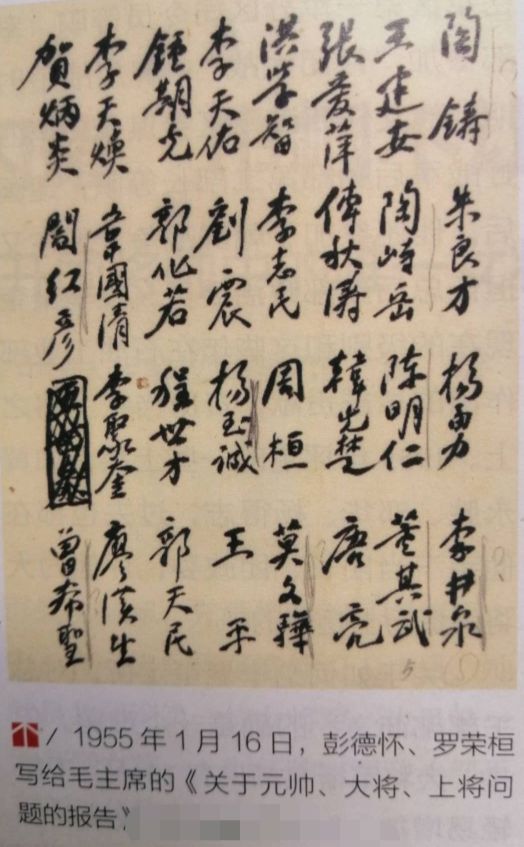 陶鑄 朱良才 楊勇 李井泉
王建安 陶峙岳 陳明仁 董其武
張愛萍 傅秋濤 韓先楚 唐亮
洪学智 李志民 周桓 莫文驊
李天佑 劉震 楊至誠 王平
鍾期光 郭化若 程世才 郭天民
李天煥 韋國清 李聚奎 廖漢生
賀炳炎 閻红彦 曾希聖
5
/ 1955年1月16日，彭德怀、罗荣桓
写给毛主席的《关于元帅、大将、上将问
题的报告》